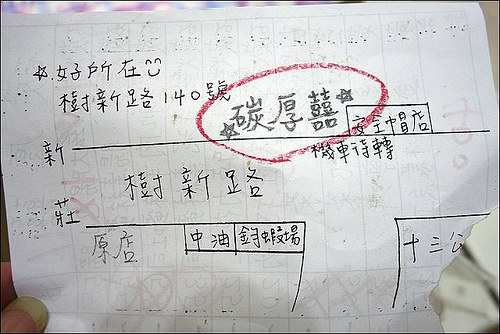 ☆好所在
樹新路140號
☆碳厚囍☆
安全帽店
新
機車待轉
樹新路
莊
中油
釣蝦場
原店
十三公